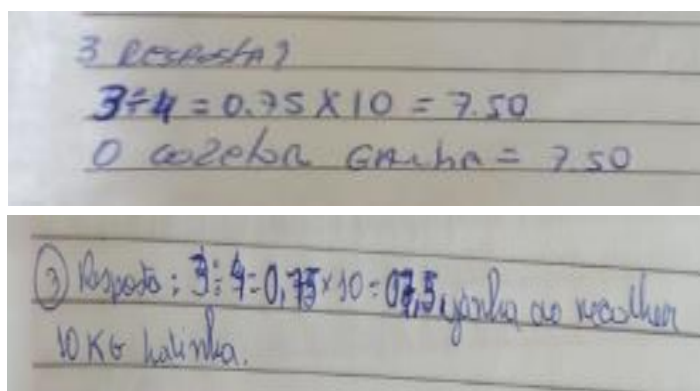 3 Resposta?
3÷4 = 0.75 X 10 = 7.50
O cozetor GANhA = 7.50
③ Resposta : 3÷4=0,75×10=07,5 ganha ao recolher
10 KG latinha.